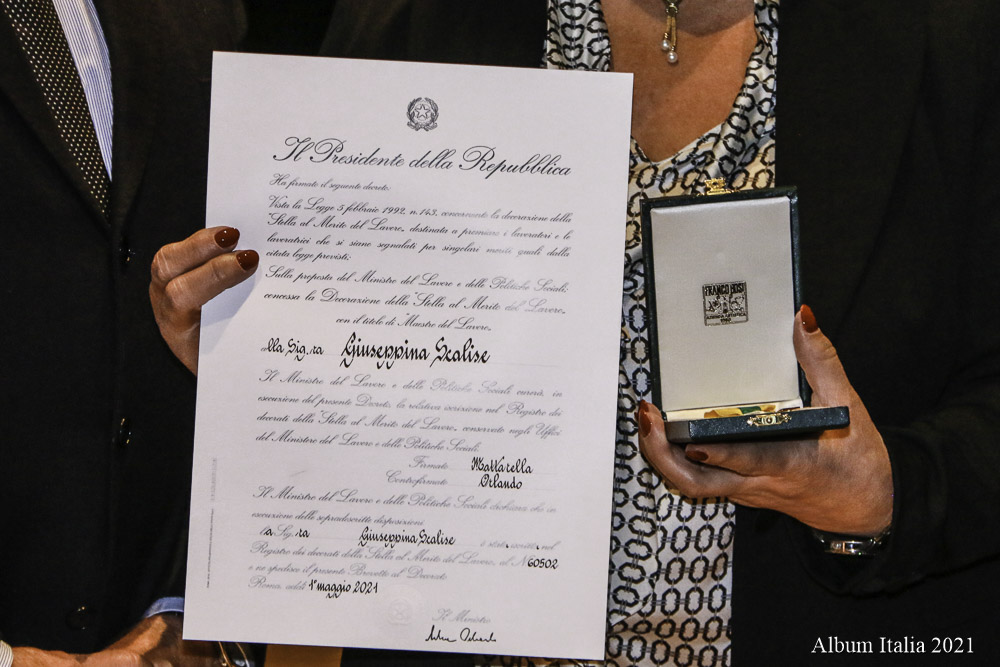 Il Presidente della Repubblica
Ha firmato il seguente decreto:
Vista la Legge 5 febbraio 1992, n. 143, concernente la decorazione della
"Stella al Merito del Lavoro" destinata a premiare i lavoratori e le
lavoratrici che si siano segnalati per singolari meriti quali dalla
citata legge previsti;
Sulla proposta del Ministro del Lavoro e delle Politiche Sociali;
concessa la Decorazione della "Stella al Merito del Lavoro"
con il titolo di Maestro del Lavoro
alla Sig.ra Giuseppina Scalise
Il Ministro del Lavoro e delle Politiche Sociali curerà, in
esecuzione del presente Decreto, la relativa iscrizione nel Registro dei
decorati della "Stella al Merito del Lavoro" conservato negli Uffici
del Ministero del Lavoro e delle Politiche Sociali.
Firmato Mattarella
Controfirmato Orlando
Il Ministro del Lavoro e delle Politiche Sociali dichiara che in
esecuzione delle sopradescritte disposizioni
la Sig.ra Giuseppina Scalise è stata iscritta nel
Registro dei decorati della Stella al Merito del Lavoro, al N° 60502
e ne spedisce il presente Brevetto al Decorato
Roma, addì 1° maggio 2021
Il Ministro
FRANCO BOSI
1960
Album Italia 2021